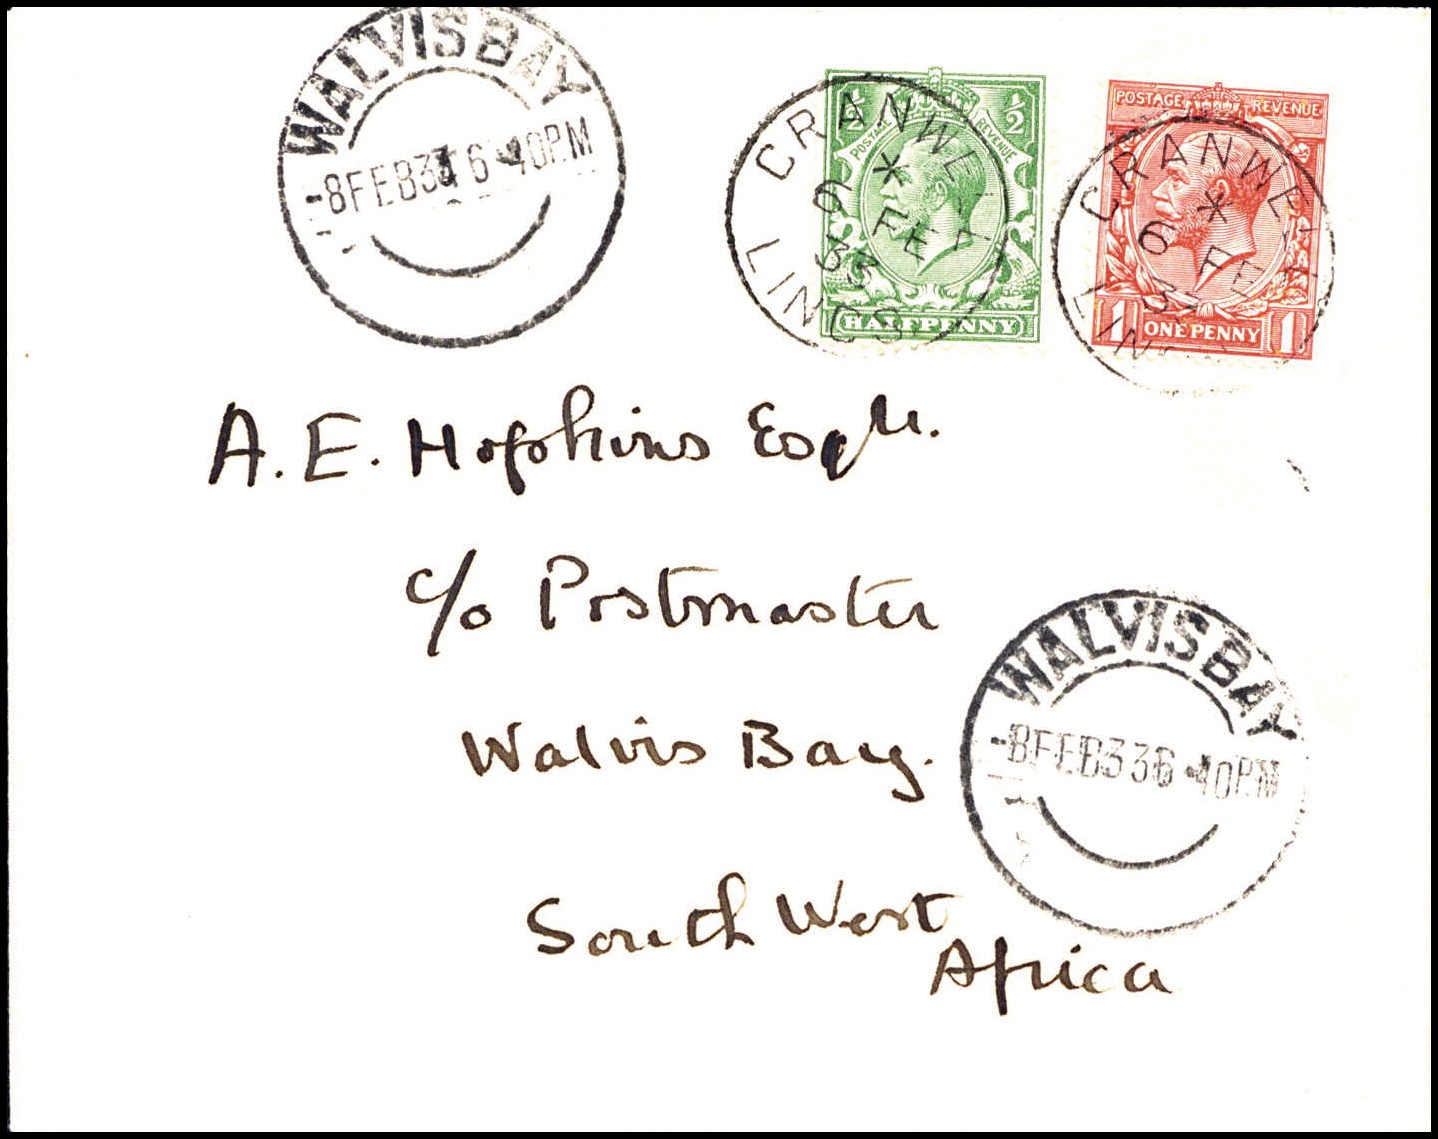 WALVIS BAY
-8FEB33 6·40PM
CRANWELL
*
6 FE
33
LINCS
½ ½
POSTAGE REVENUE
HALFPENNY
CRANWELL
*
6 FE
33
LINCS
POSTAGE REVENUE
1 ONE PENNY 1
A. E. Hopkins Esqre.
c/o Postmaster
Walvis Bay.
South West
Africa
WALVIS BAY
-8FEB33 6·40PM